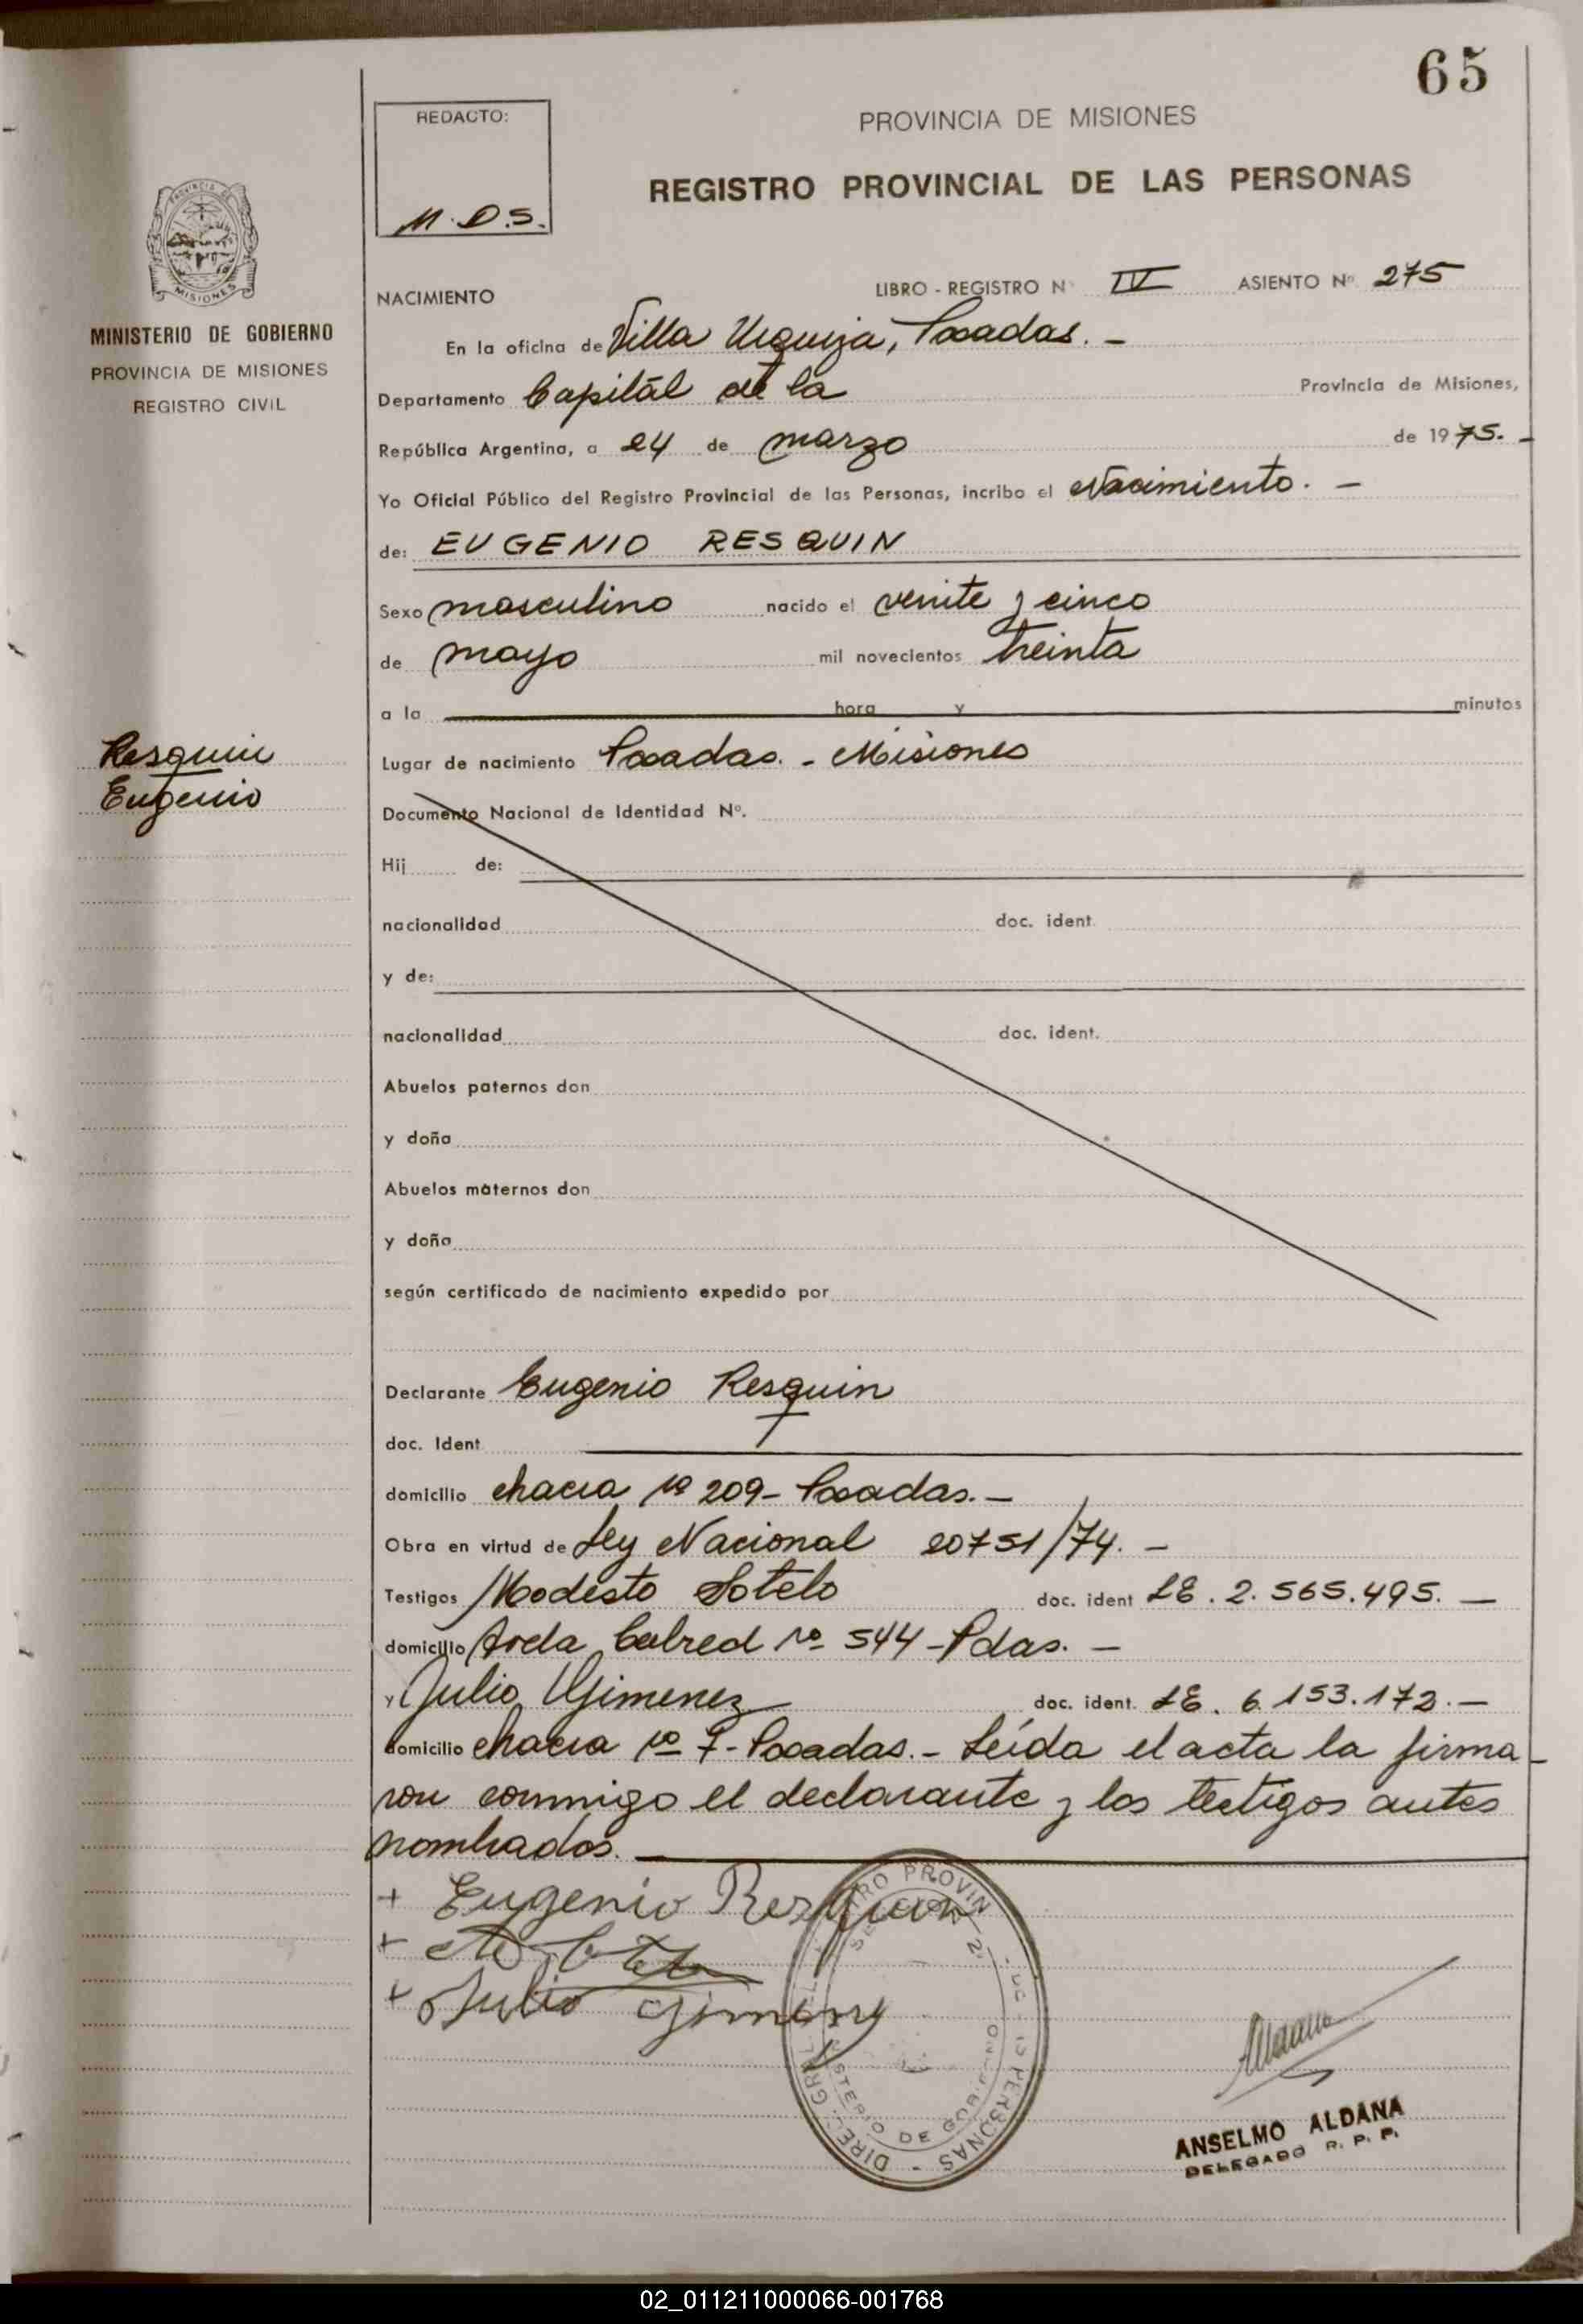 65
REDACTO:
M.D.S.
PROVINCIA DE MISIONES
REGISTRO PROVINCIAL DE LAS PERSONAS
PROVINCIA DE
MISIONES
MINISTERIO DE GOBIERNO
PROVINCIA DE MISIONES
REGISTRO CIVIL
NACIMIENTO LIBRO - REGISTRO N° IV ASIENTO N° 275
En la oficina de Villa Urquiza, Posadas. -
Departamento Capitál de la Provincia de Misiones,
República Argentina, a 24 de marzo de 1975. -
Yo Oficial Público del Registro Provincial de las Personas, incribo el Nacimiento. -
de: EUGENIO RESQUIN
Sexo masculino nacido el venite y cinco
de mayo mil novecientos treinta
a la hora y minutos
Resquin
Eugenio
Lugar de nacimiento Posadas. - Misiones
Documento Nacional de Identidad N°.
Hij de:
nacionalidad doc. ident.
y de:
nacionalidad doc. ident.
Abuelos paternos don
y doña
Abuelos maternos don
y doña
según certificado de nacimiento expedido por
Declarante Eugenio Resquin
doc. Ident
domicilio chacra nº 209 - Posadas. -
Obra en virtud de Ley Nacional 20751/74. -
Testigos Modesto Sotelo doc. ident LE. 2.565.495. -
domicilio Avda Cabred nº 544 - Pdas. -
y Julio Gimenez doc. ident. LE. 6.153.172. -
domicilio chacra nº 7 - Posadas. - Leída el acta la firma-
ron conmigo el declarante y los testigos antes
nombrados. -
+ Eugenio Resquin
+
+ Julio Gimenez
DIREC. GRAL. PROVIN PERSONAS
MINISTERIO DE GOBIERNO
ANSELMO ALDANA
DELEGADO R. P. P.
02_011211000066-001768